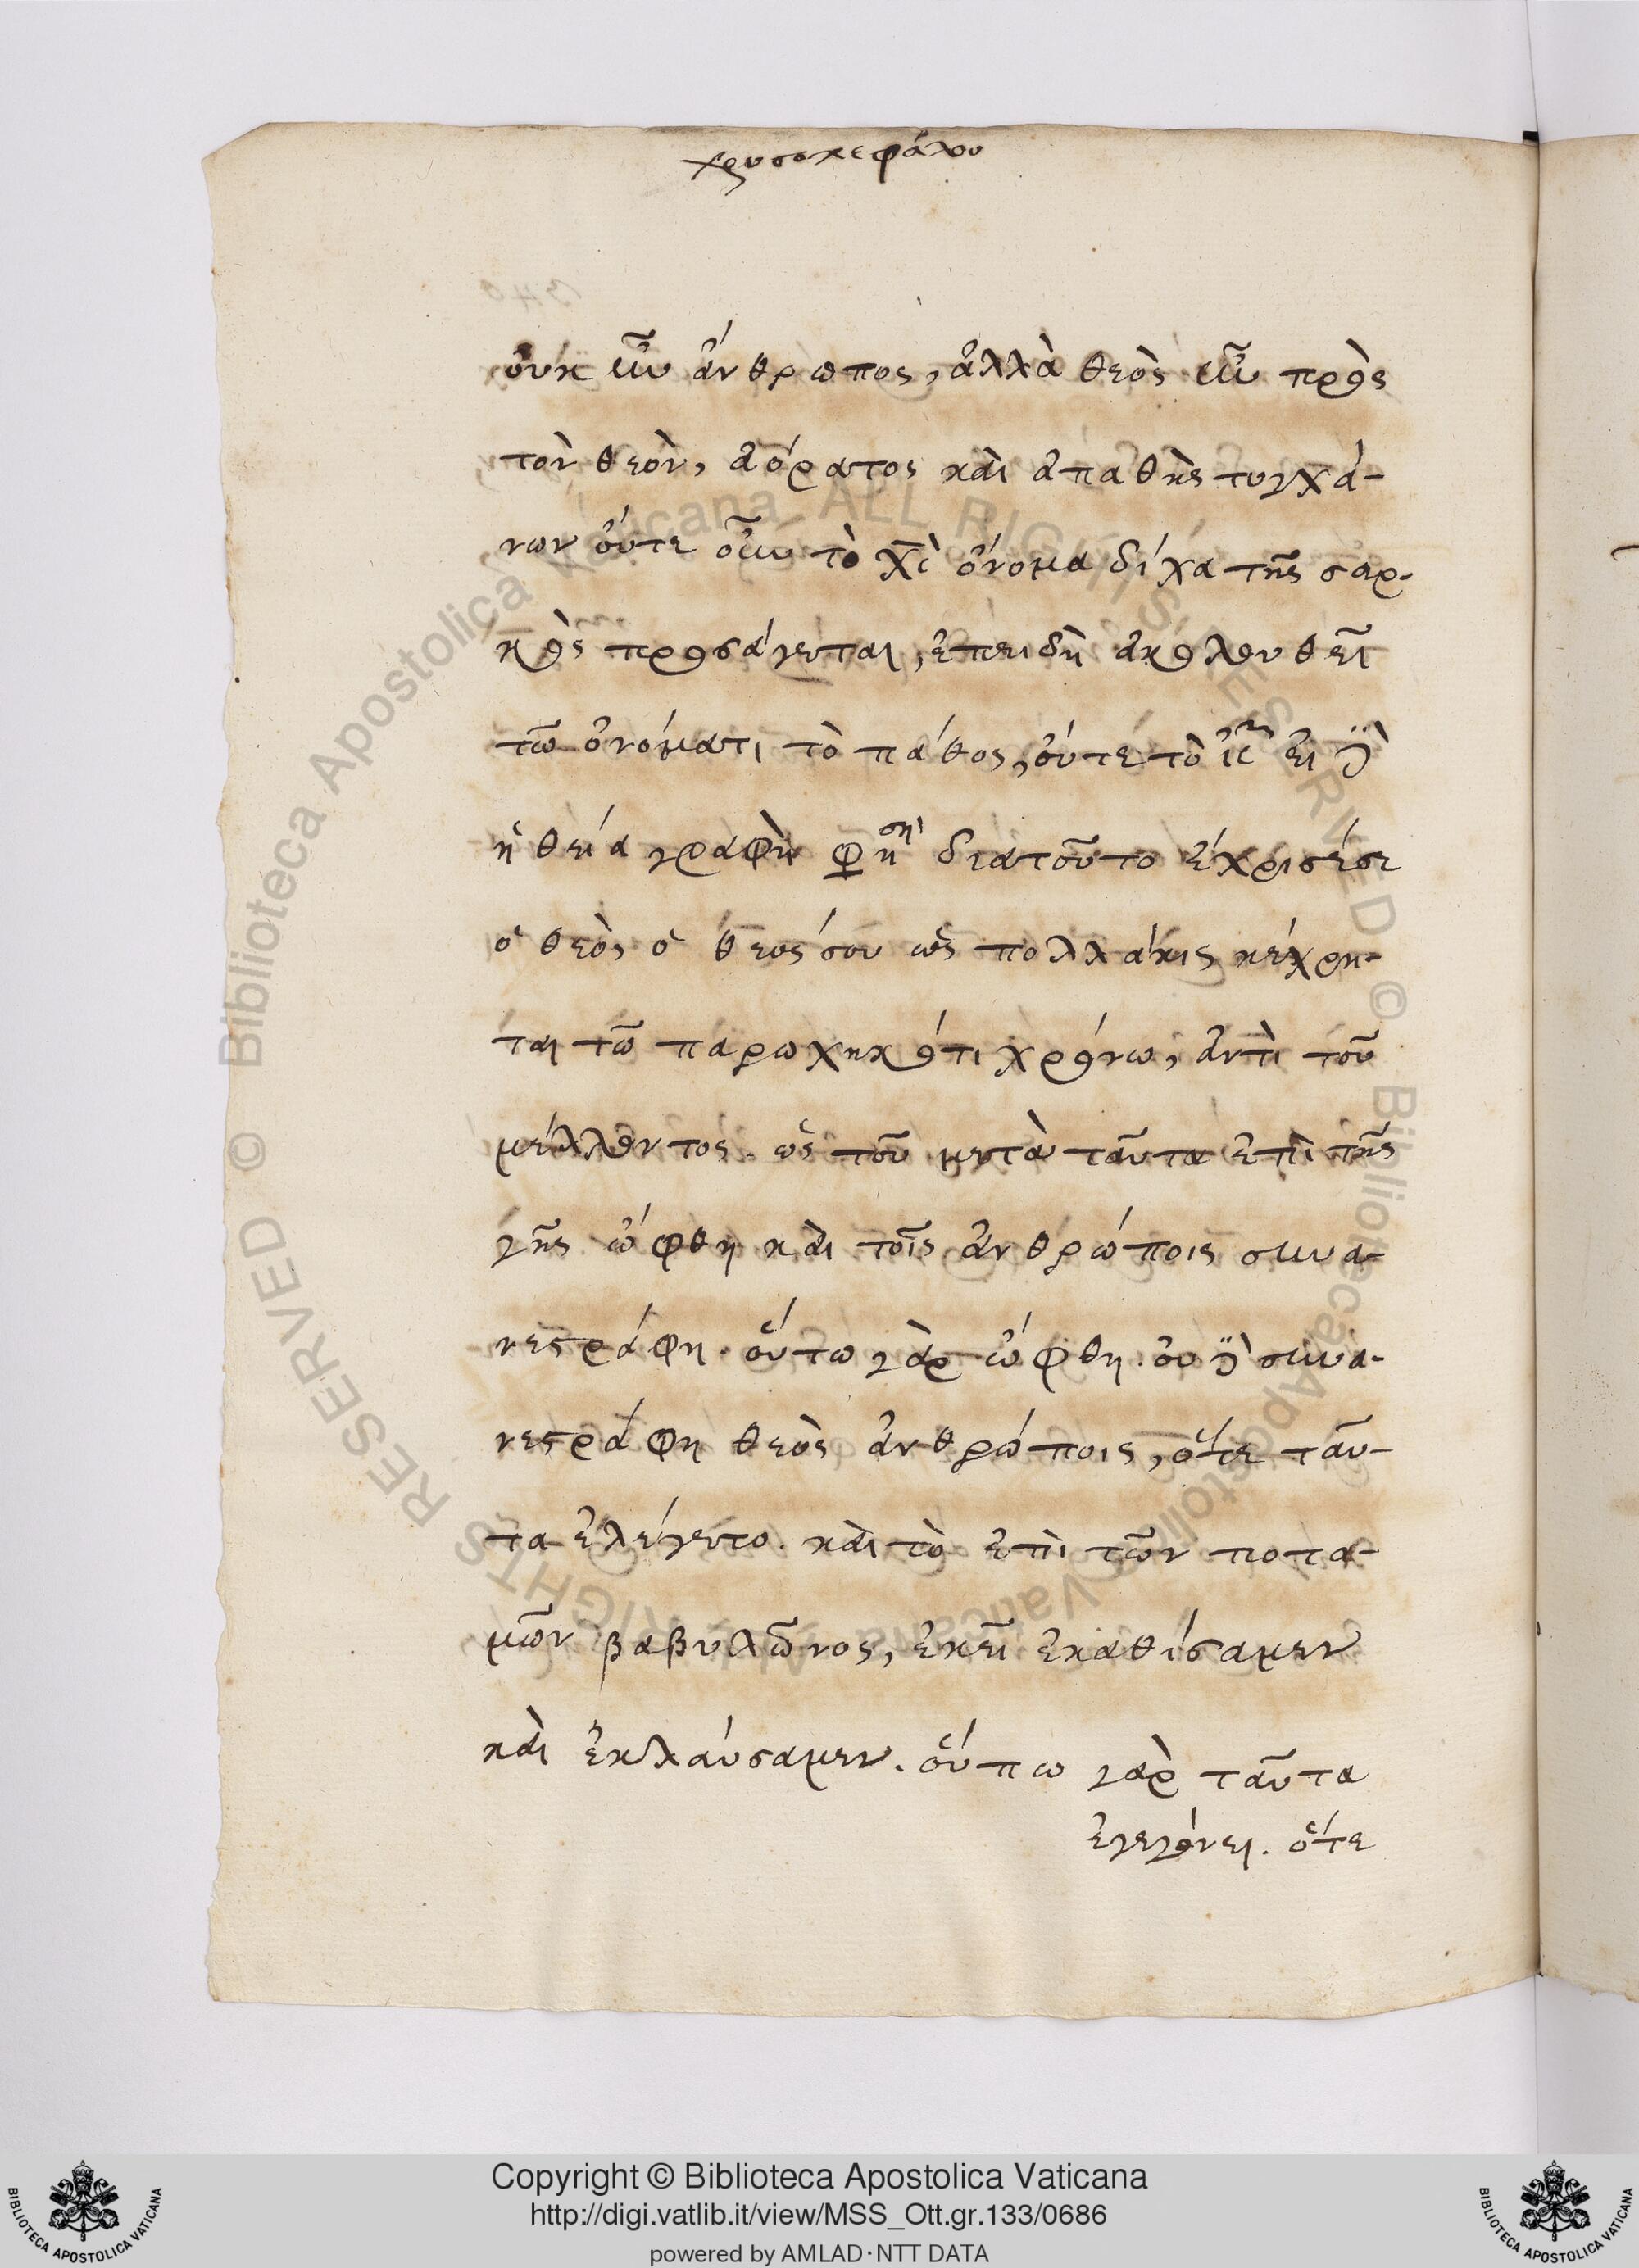 χρυσοκεφάλου
οὐκ ἦν ἄνθρωπος, ἀλλὰ θεὸς ἦν πρὸς
τὸν θεὸν, ἀόρατος καὶ ἀπαθὴς τυγχά-
νων οὔτε οὖν τὸ χ̅ς̅ ὄνομα δίχα τῆς σαρ-
κὸς προσάγεται, ἐπειδὴ ἀκολουθεῖ
τῶ ὀνόματι τὸ πάθος, οὔτε τὸ ι̅ς̅ εἰ δὲ
ἡ θεία γραφὴ φησὶ διατοῦτο ἔχρισέσε
ὁ θεὸς ὁ θεός σου ὡς πολλάκις κέχρη-
ται τῶ παρωχηκότι χρόνω, ἀντὶ τοῦ
μέλλοντος. ὡς τοῦ μετὰ ταῦτα ἐπὶ τῆς
γῆς ὤφθη καὶ τοῖς ἀνθρώποις συνα-
νεστράφη. οὔτω γὰρ ὤφθη. οὐ δὲ συνα-
νεστράφη θεὸς ἀνθρώποις, ὅτε ταῦ-
τα ἐλέγετο. καὶ τὸ ἐπὶ τῶν ποτα-
μῶν βαβυλῶνος, ἐκεῖ ἐκαθίσαμεν
καὶ ἐκλαύσαμεν. οὔπω γὰρ ταῦτα
ἐγεγόνει. ὅτε
Copyright © Biblioteca Apostolica Vaticana
http://digi.vatlib.it/view/MSS_Ott.gr.133/0686
powered by AMLAD·NTT DATA